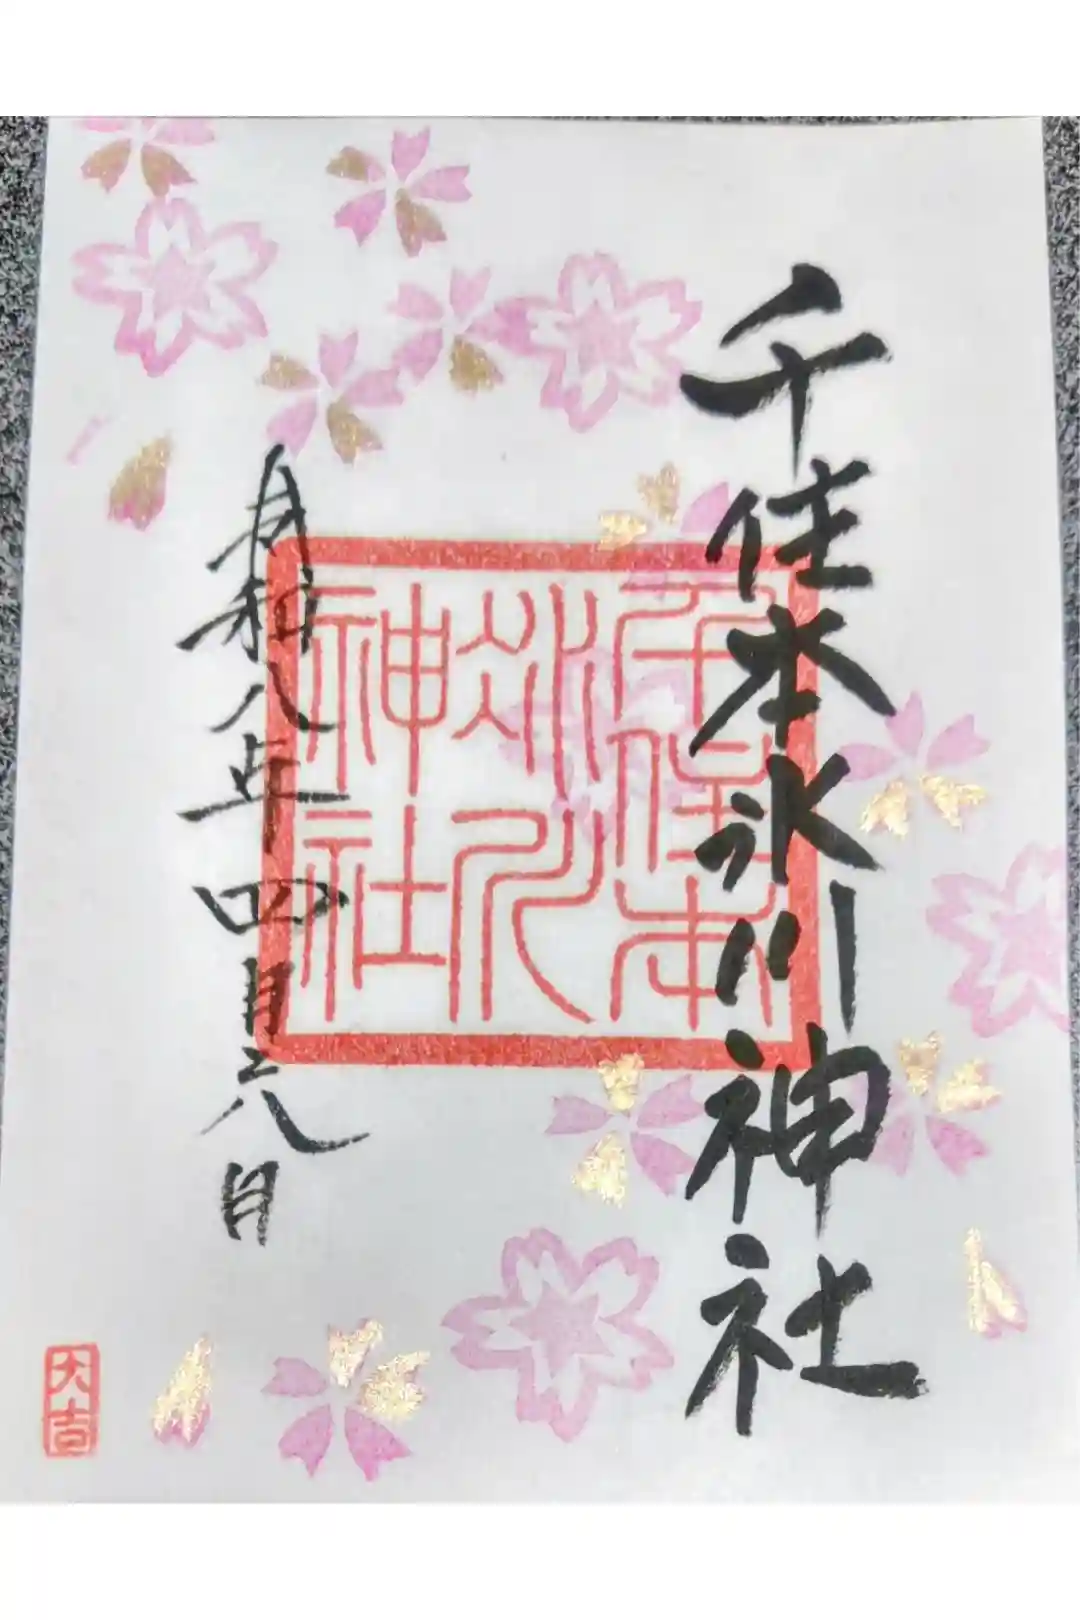 千住本氷川神社
千住本
氷川
神社
令和八年四月六日
大吉